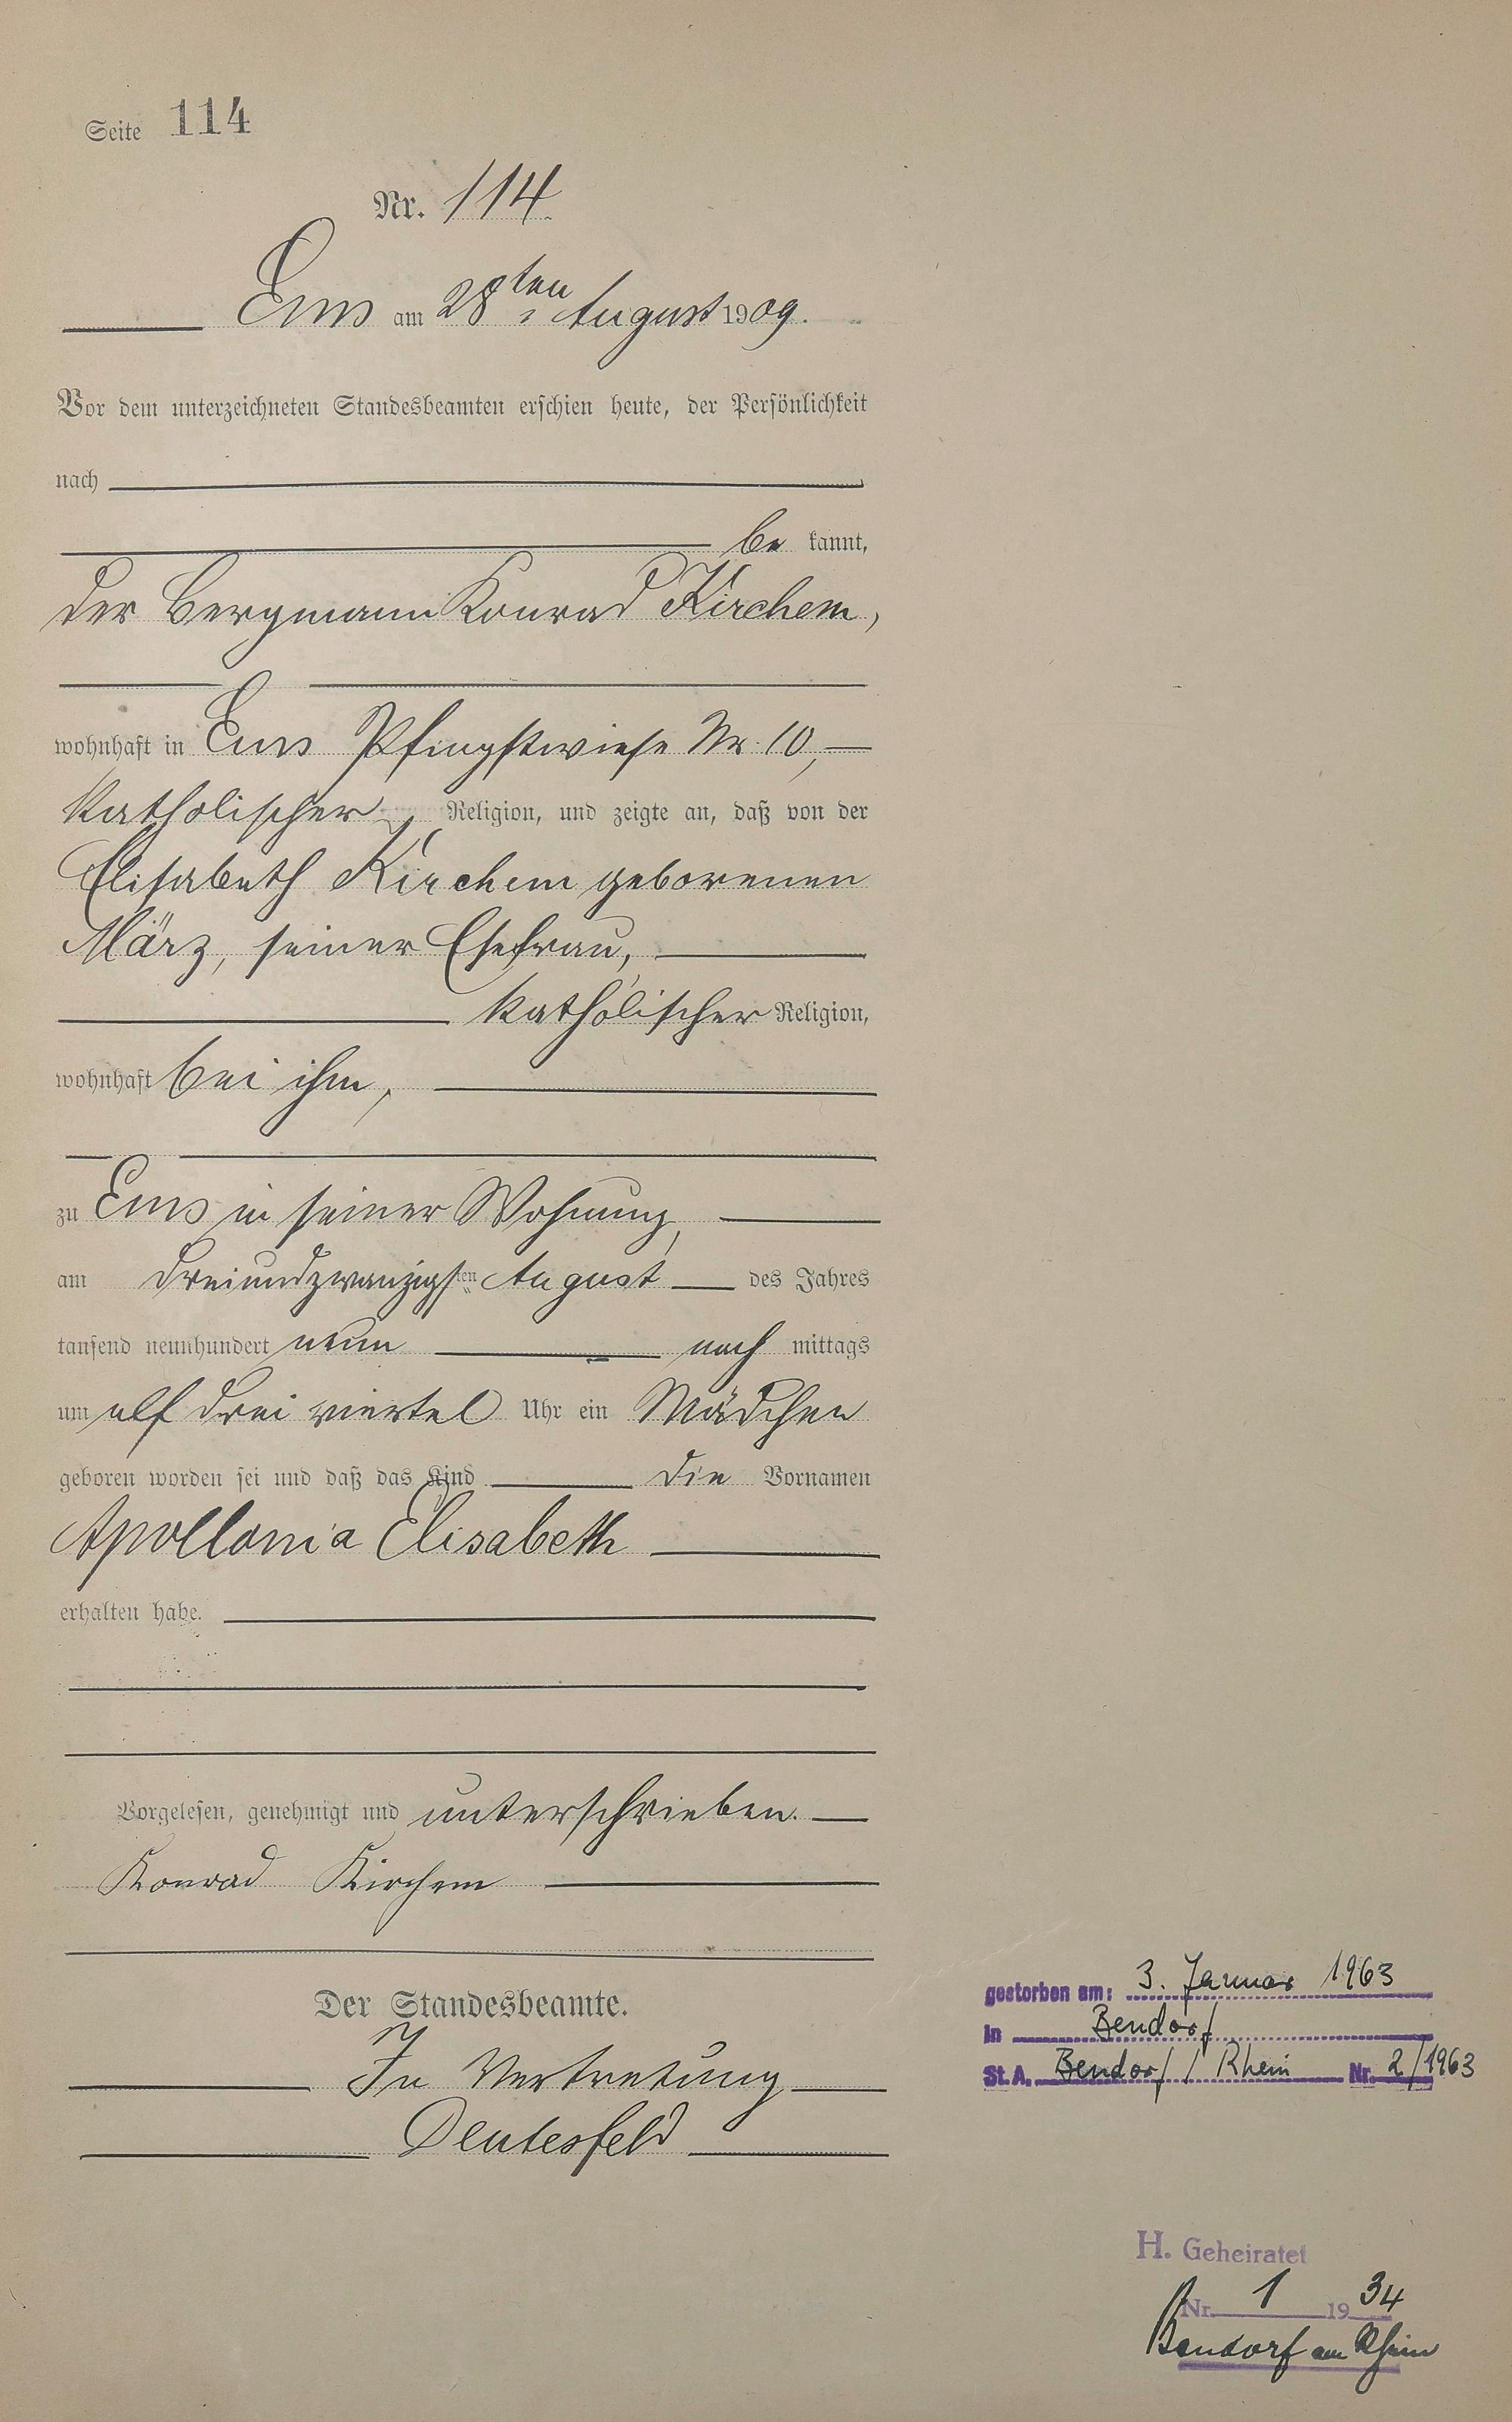 Seite 114
Nr. 114.
Ems am 28ten August 1909.
Vor dem unterzeichneten Standesbeamten erschien heute, der Persönlichkeit
nach
be kannt,
der Bergmann Konrad Kirchem,
wohnhaft in Ems Pfingstwiese Nr. 10,
katholischer Religion, und zeigte an, daß von der
Elisabeth Kirchem geborenen
März, seiner Ehefrau,
katholischer Religion,
wohnhaft bei ihm,
zu Ems in seiner Wohnung,
am dreiundzwanzigsten August des Jahres
tausend neunhundert neun nach mittags
um elf drei viertel Uhr ein Mädchen
geboren worden sei und daß das Kind die Vornamen
Apollonia Elisabeth
erhalten habe.
Vorgelesen, genehmigt und unterschrieben.
Konrad Kirchem
Der Standesbeamte.
In Vertretung
gestorben am: 3. Januar 1963
in Bendorf
St. A. Bendorf / Rhein Nr. 2/1963
H. Geheiratet
Nr. 1 1934
Bendorf am Rhein